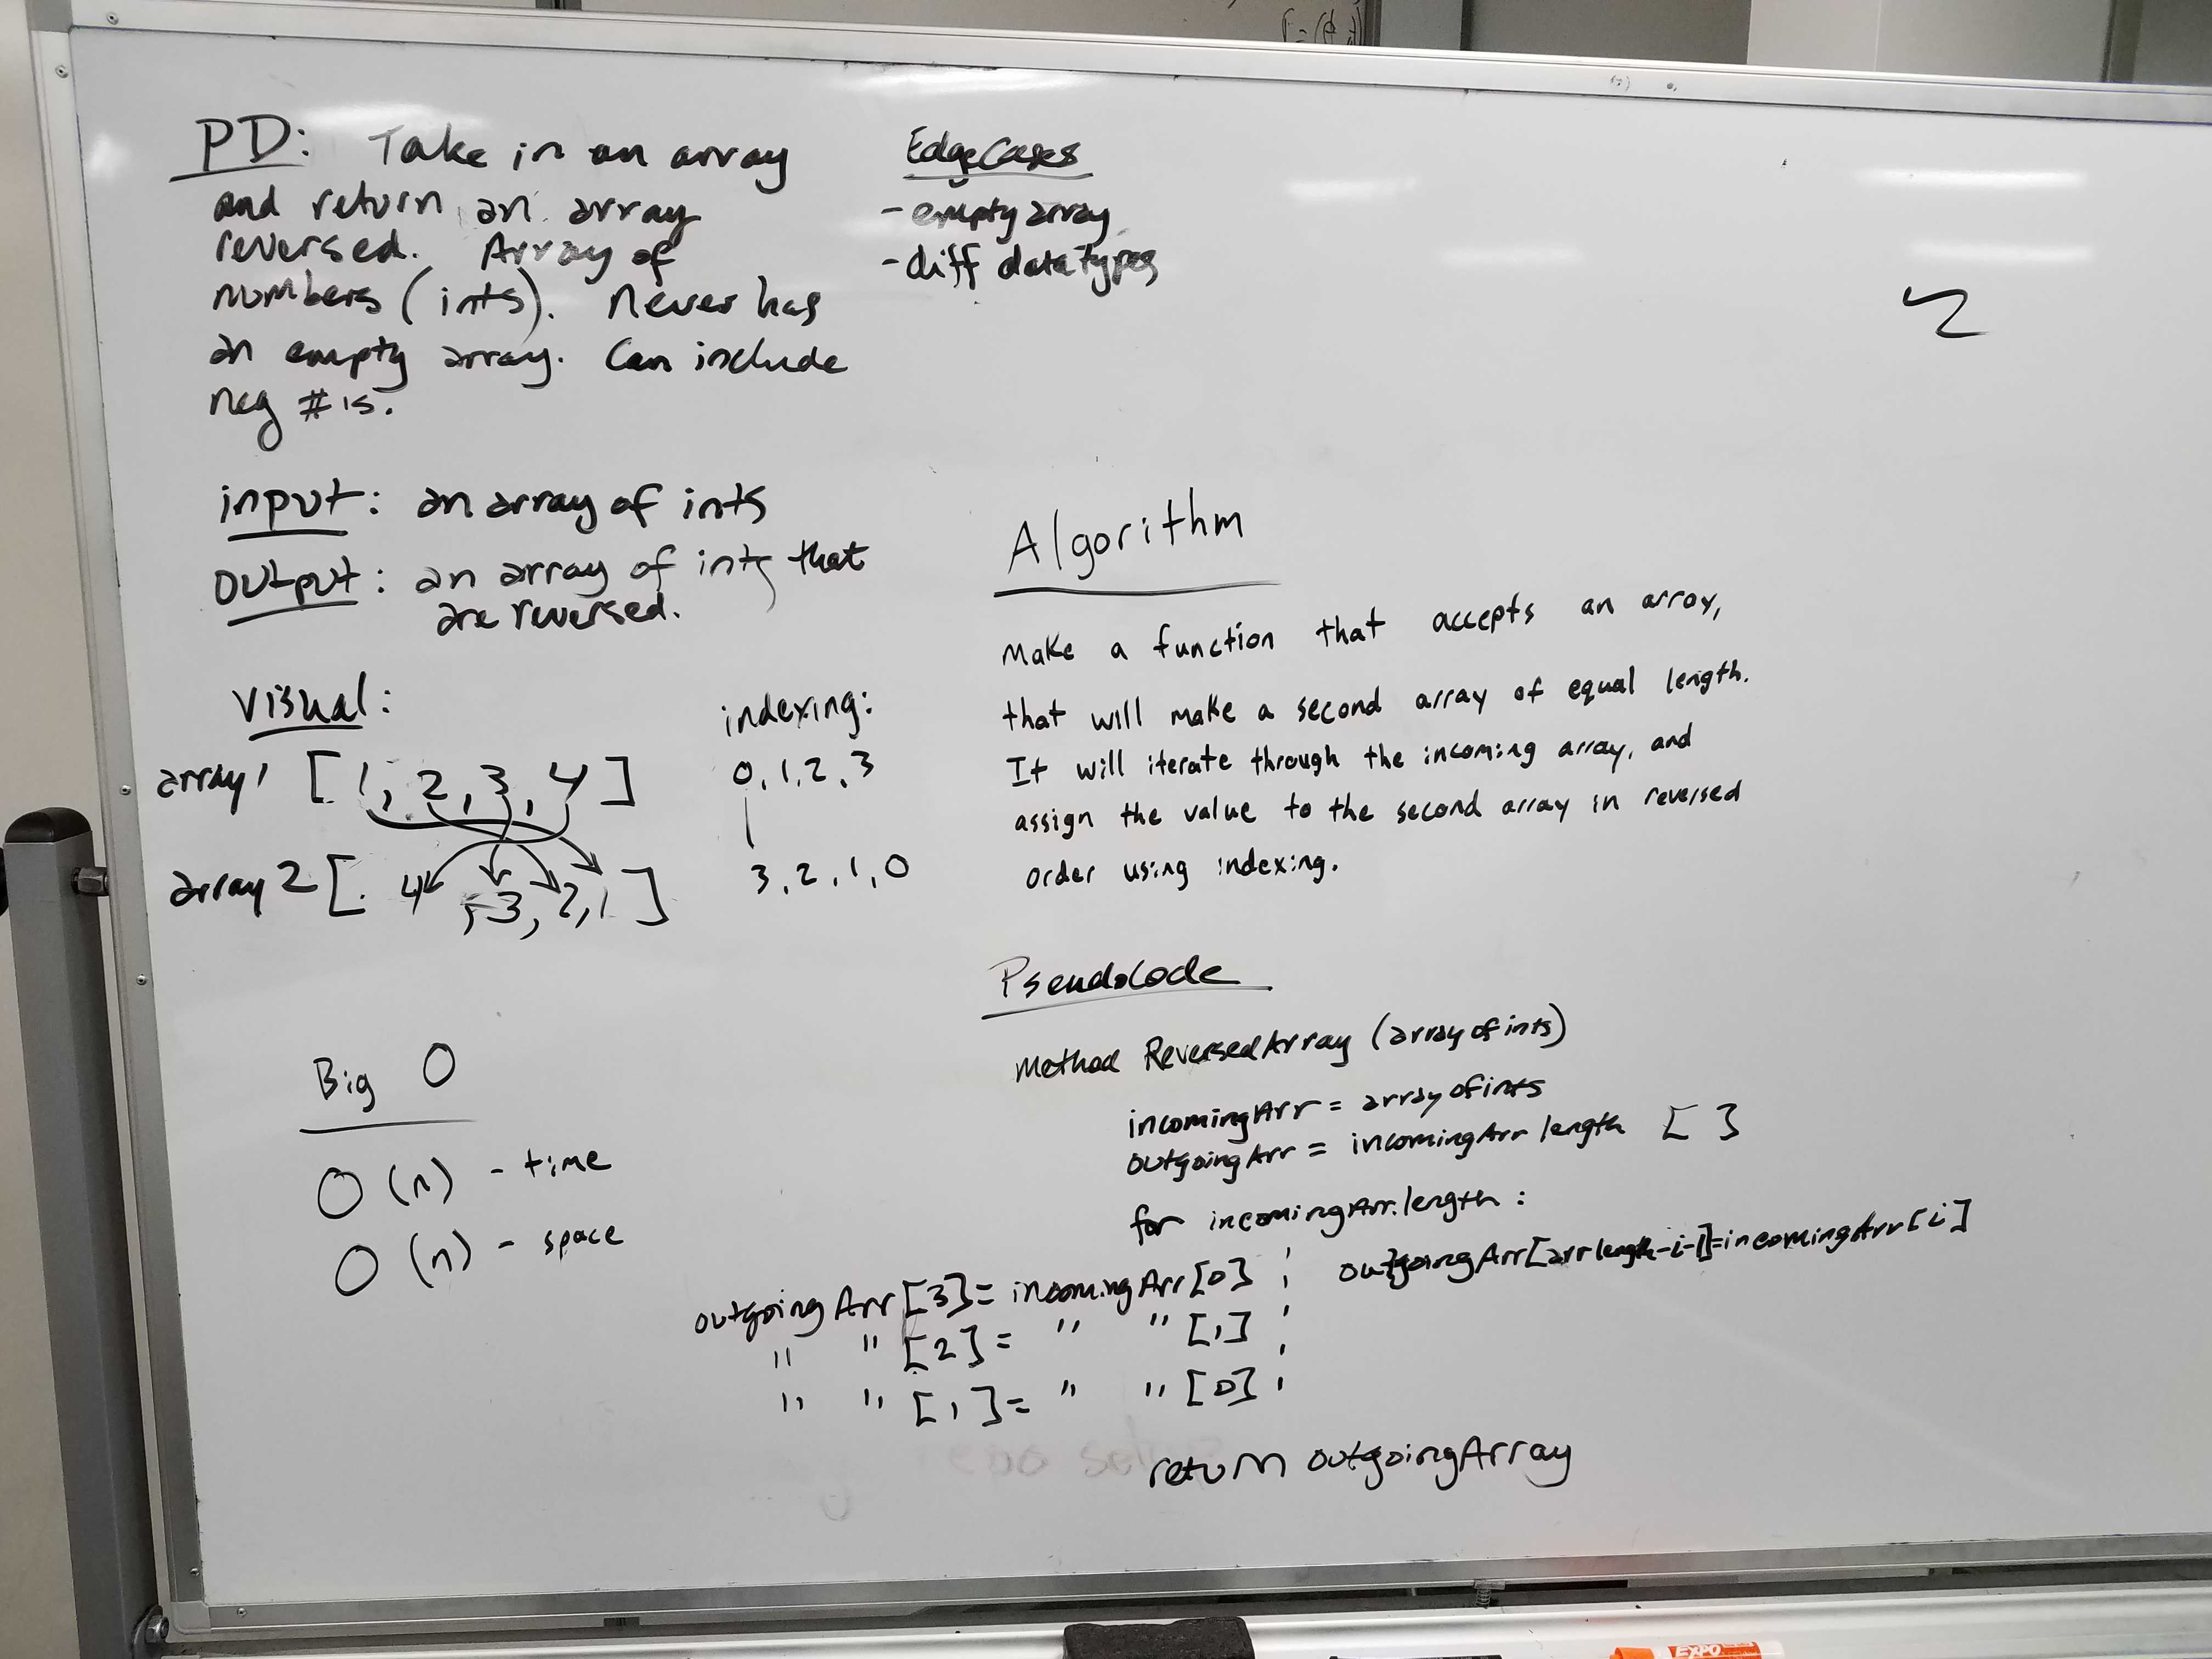 PD: Take in an array
and return an array
reversed. Array of
numbers (ints). Never has
an empty array. Can include
neg #'s.
EdgeCases
- empty array
- diff datatypes
input: an array of ints
OUtput: an array of ints that
are reversed.
Visual:
array1 [1, 2, 3, 4]
array 2 [. 4, 3, 2, 1]
indexing:
0, 1, 2, 3
3, 2, 1, 0
Algorithm
Make a function that accepts an array,
that will make a second array of equal length.
It will iterate through the incoming array, and
assign the value to the second array in reversed
order using indexing.
Big O
O (n) - time
O (n) - space
Pseudocode
Method ReversedArray (arrayofints)
incomingArr = arrayofints
outgoingArr = incomingArr length [ ]
for incomingArr.length :
outgoingArr[arrlength-i-1]=incomingArr[i]
outgoingArr[3]= incomingArr[0] ;
" " [2] = " " [1] ;
" " [1] = " " [0] ;
return outgoingArray
EXPO